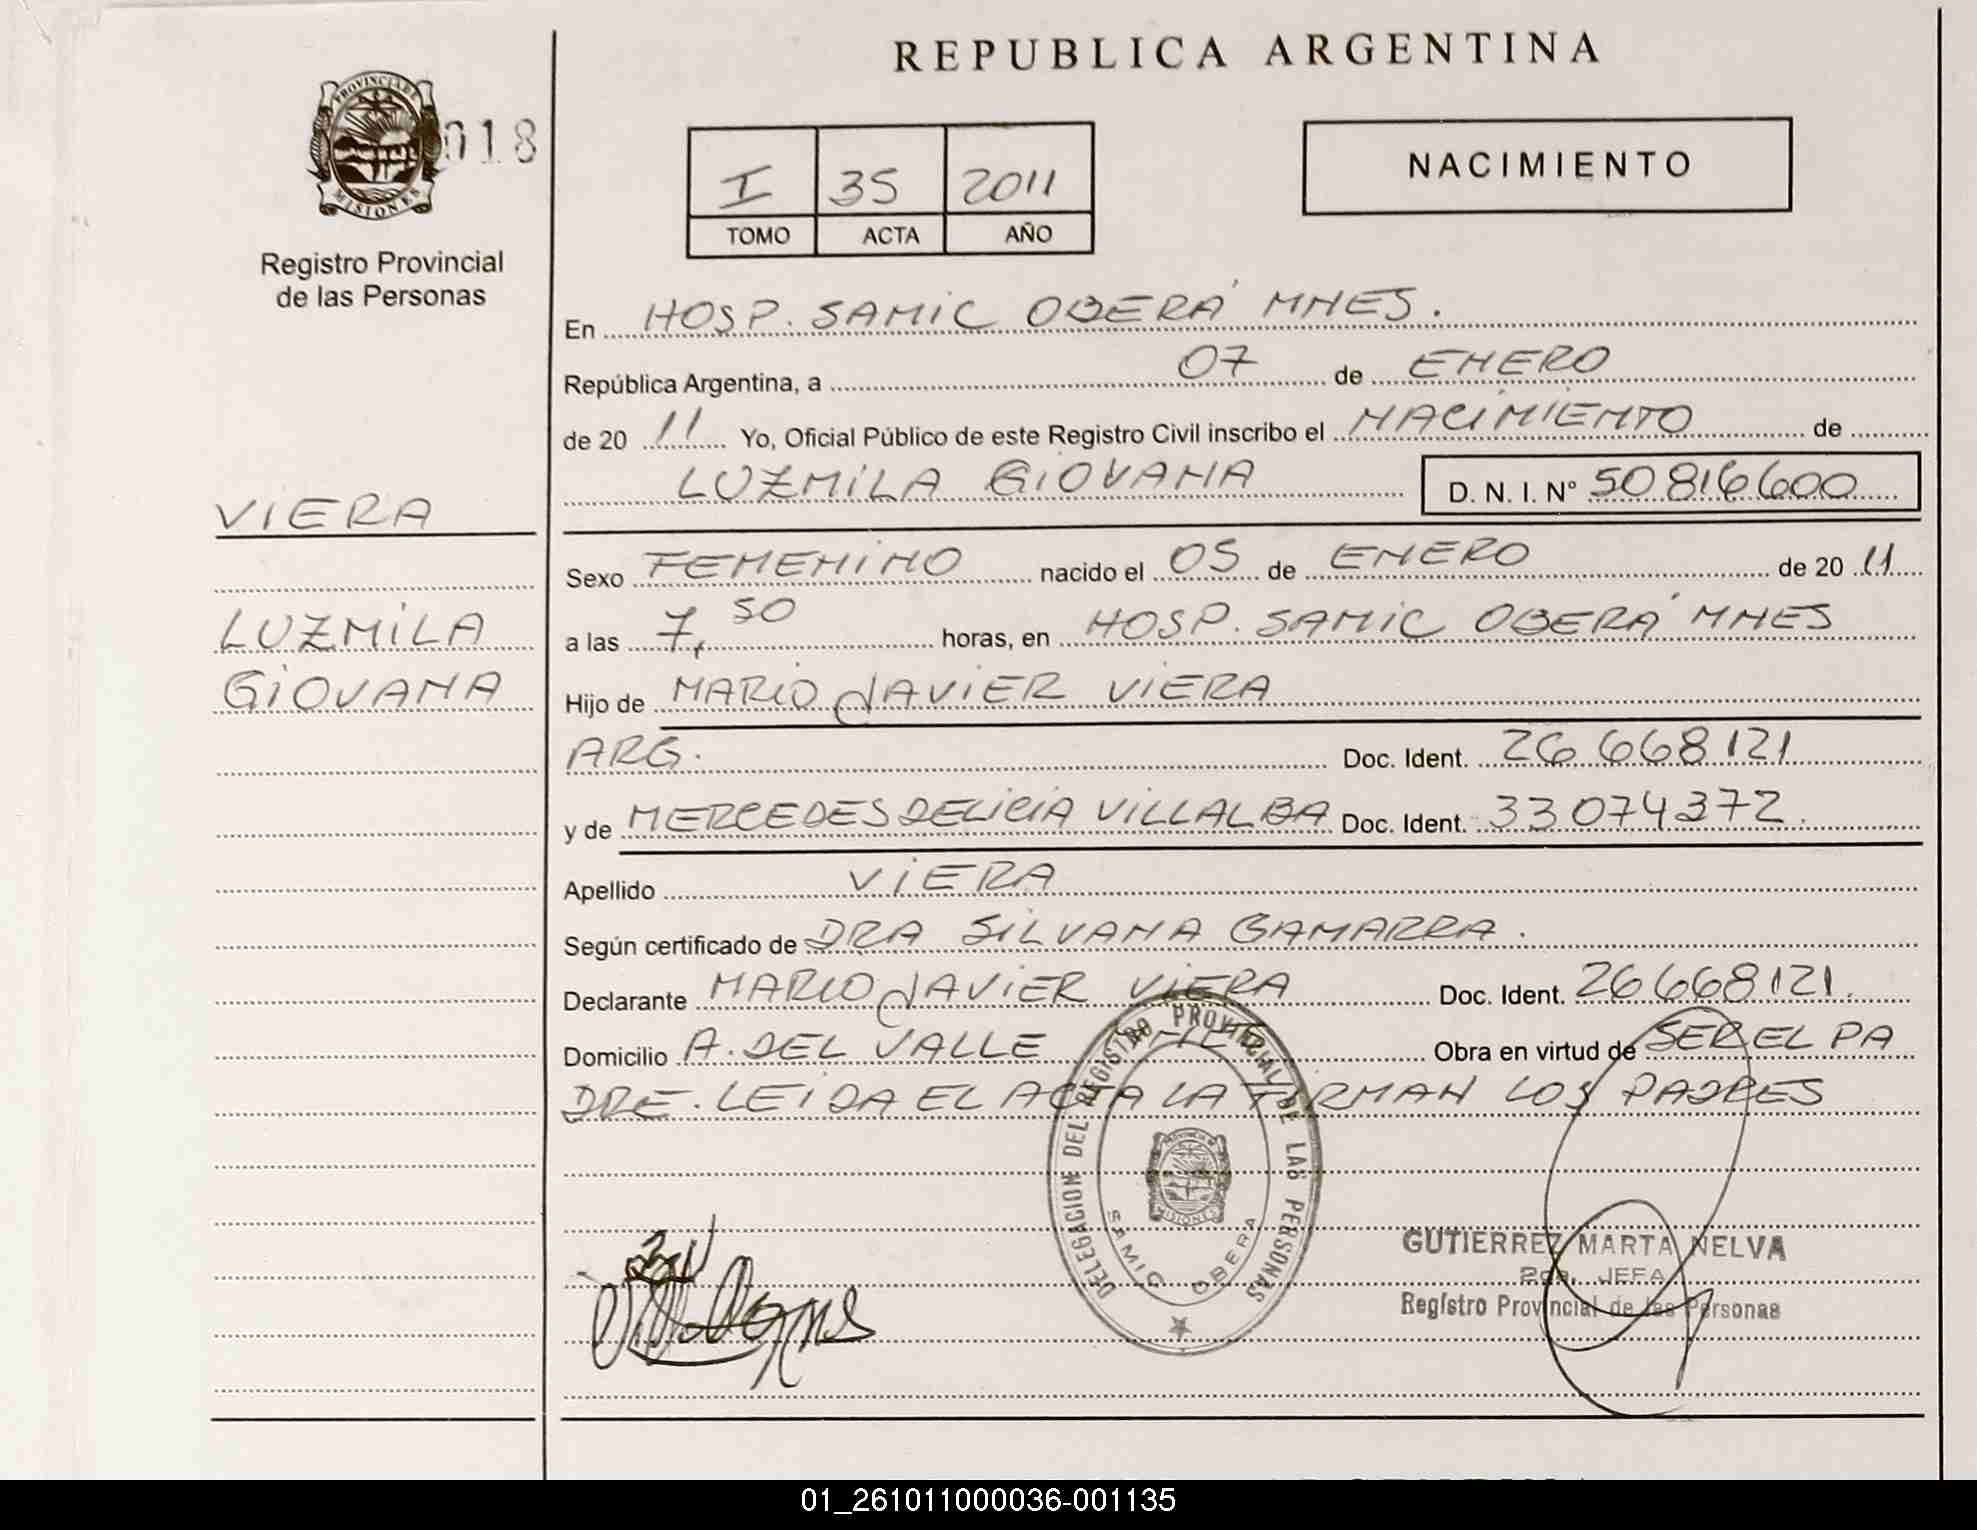 REPUBLICA ARGENTINA
PROVINCIA DE
MISIONES
018
Registro Provincial
de las Personas
I 35 2011
TOMO ACTA AÑO
NACIMIENTO
En HOSP. SAMIC OBERÁ MNES.
República Argentina, a 07 de ENERO
de 20 11 Yo, Oficial Público de este Registro Civil inscribo el NACIMIENTO de
LUZMILA GIOVANA D. N. I. N° 50816600
VIERA
LUZMILA
GIOVANA
Sexo FEMENINO nacido el 05 de ENERO de 20 11
a las 7,50 horas, en HOSP. SAMIC OBERÁ MNES
Hijo de MARIO JAVIER VIERA
ARG. Doc. Ident. 26 668 121
y de MERCEDES DELICIA VILLALBA Doc. Ident. 33 074 372.
Apellido VIERA
Según certificado de DRA SILVANA GAMARRA.
Declarante MARIO JAVIER VIERA Doc. Ident. 26 668 121.
Domicilio A. DEL VALLE Obra en virtud de SER EL PA
DRE. LEIDA EL ACTA LA FIRMAN LOS PADRES
DELEGACION DEL REGISTRO PROVINCIAL DE LAS PERSONAS
SAMIC OBERA
GUTIERREZ MARTA NELVA
2da. JEFA
Registro Provincial de las Personas
01_261011000036-001135